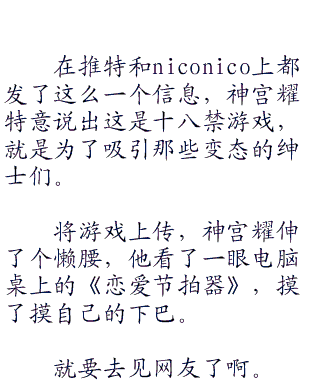 在推特和niconico上都
发了这么一个信息，神宫耀
特意说出这是十八禁游戏，
就是为了吸引那些变态的绅
士们。
将游戏上传，神宫耀伸
了个懒腰，他看了一眼电脑
桌上的《恋爱节拍器》，摸
了摸自己的下巴。
就要去见网友了啊。